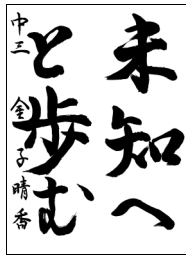 未知へ
と歩む
中三 金子晴香